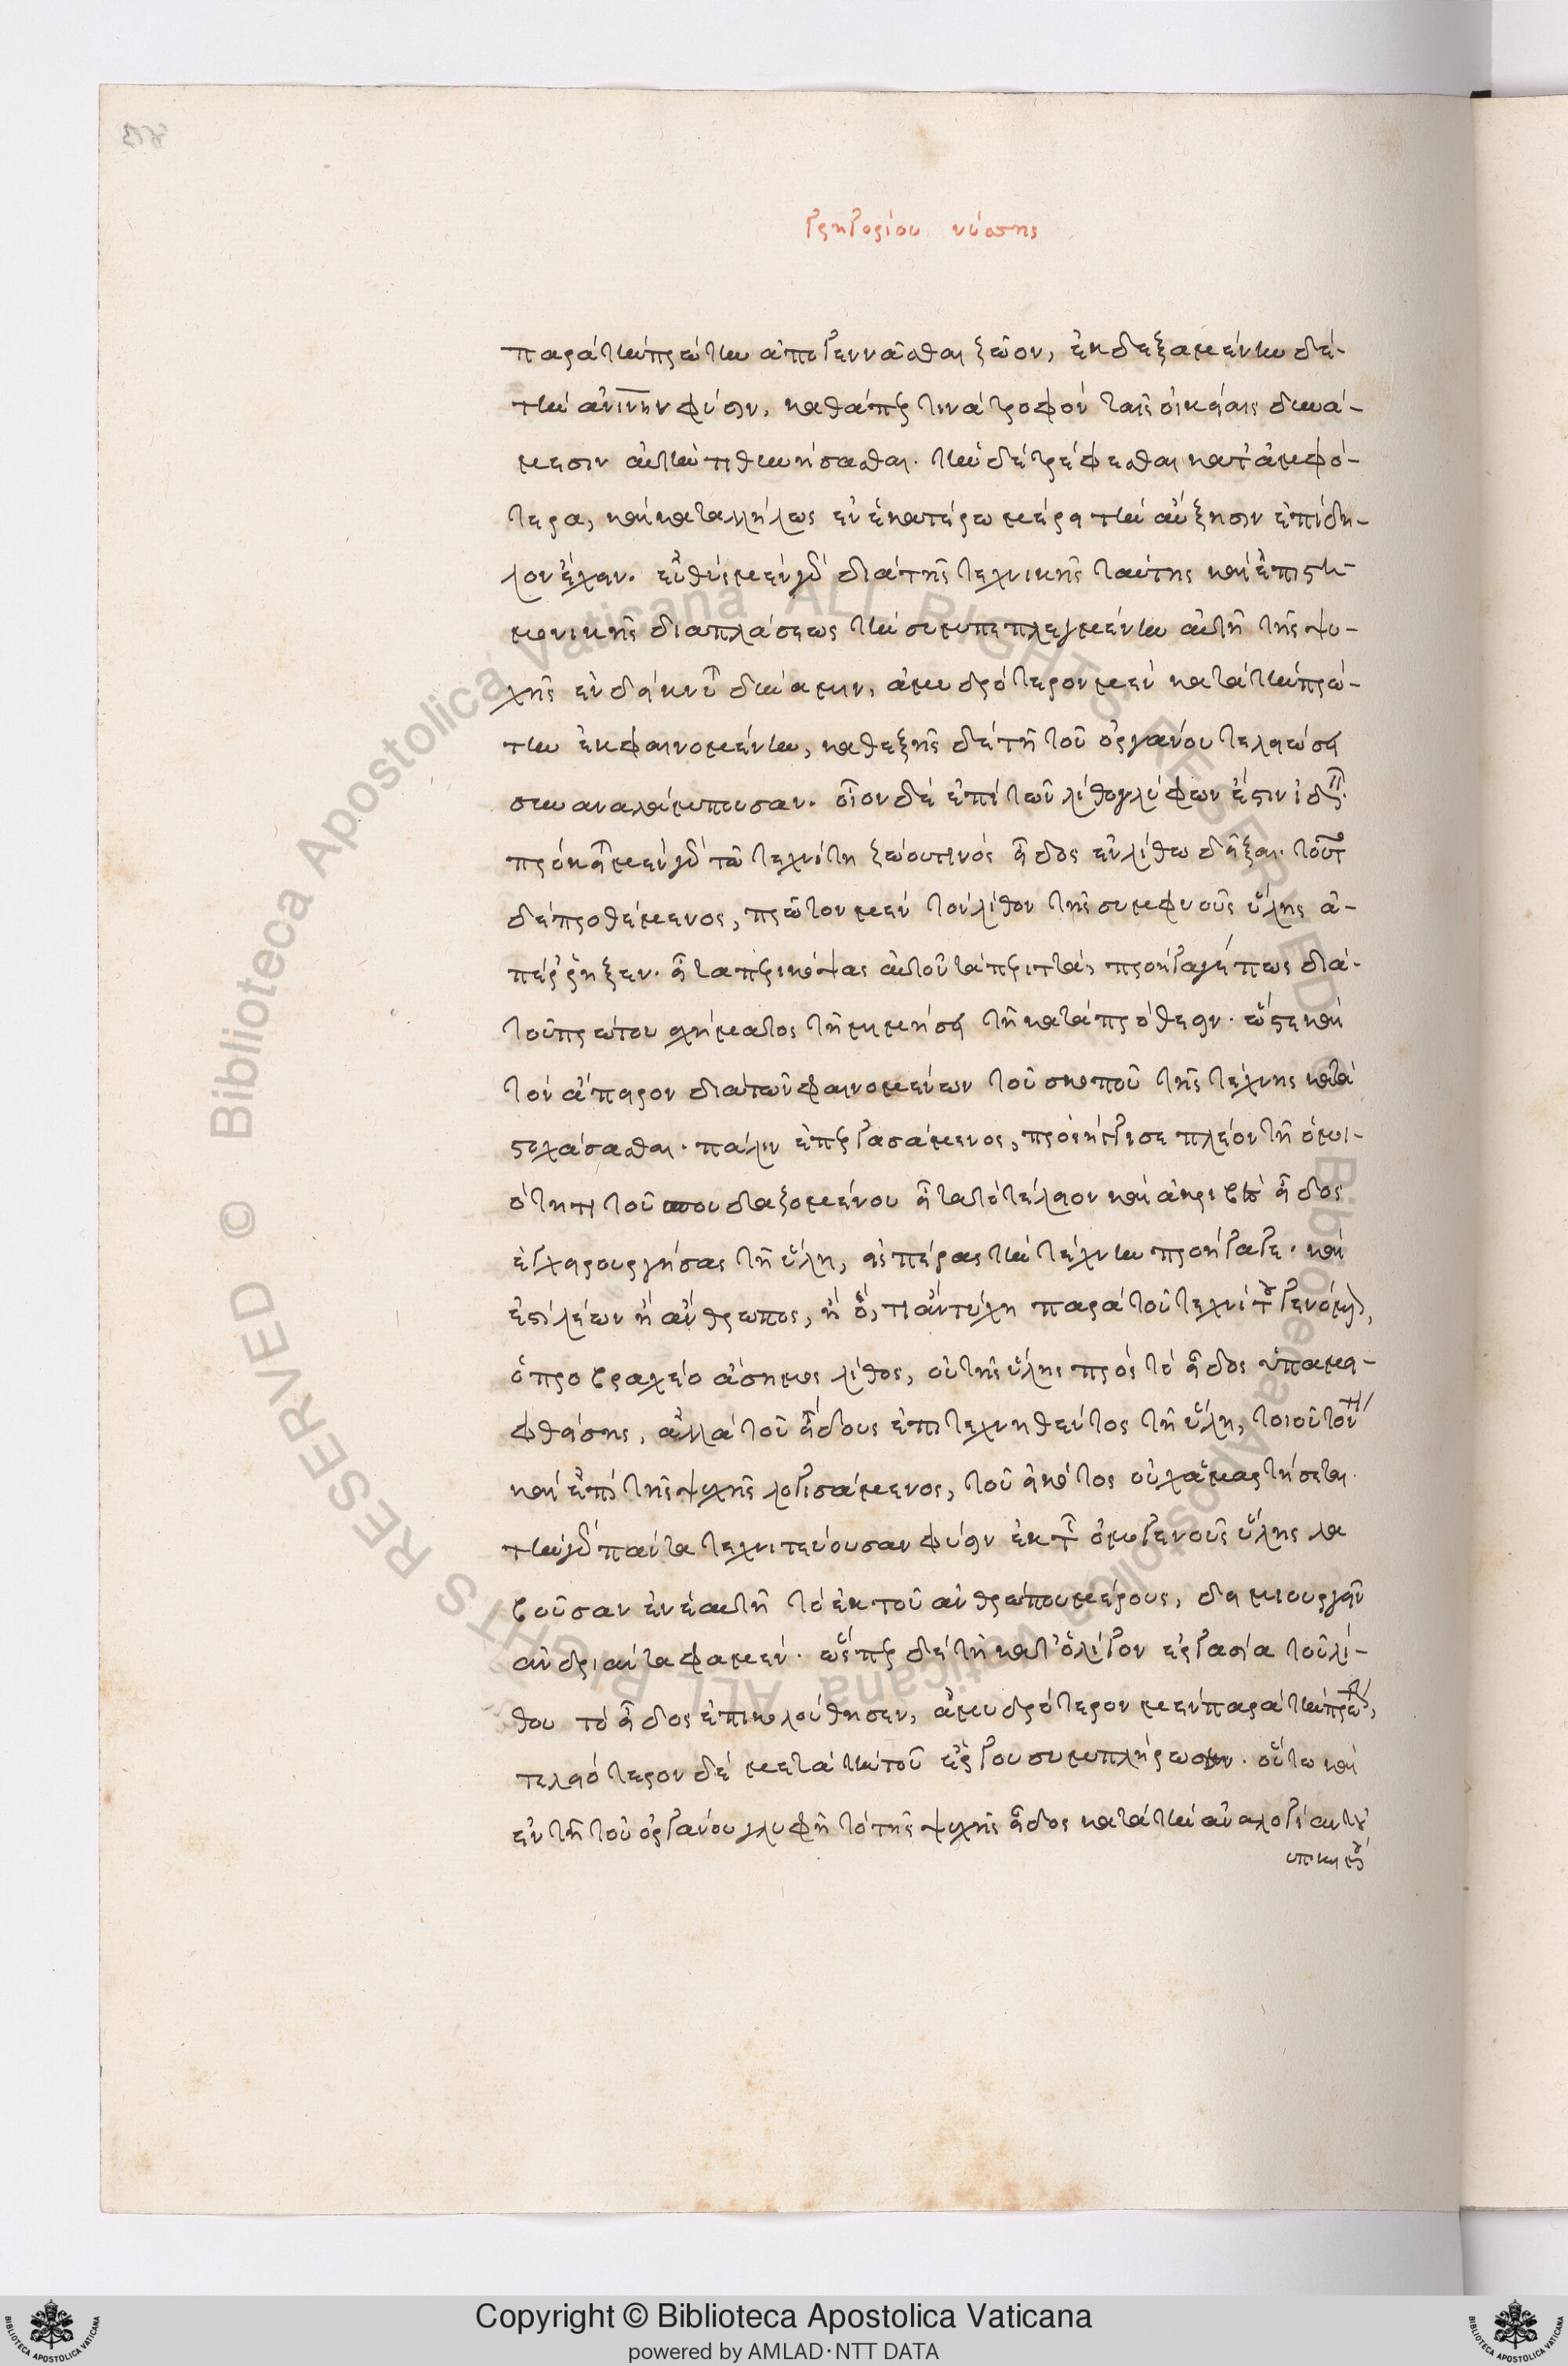 Γρηγορίου νύσης
παρὰ τὴν πρώτην ἀπογεννᾶσθαι ζῶον, ἐκδεξαμένην δὲ
τὴν ἀνινην φύσιν, καθάπερ τινὰ τροφὸν ταῖς οἰκείαις δυνά-
μεσιν αὐτὴν τιθηνήσασθαι. τὴν δὲ τρέφεσθαι κατ' ἀμφό-
τερα, καὶ καταλλήλως ἐν ἑκατέρω μέρει τὴν αὔξησιν ἐπίδη-
λον ἔχειν. εὐθὺς μὲν γὰρ διὰ τῆς τεχνικῆς ταύτης καὶ ἐπιστη-
μονικῆς διαπλάσεως τὴν συμπεπλεγμένην αὐτῆ τῆς ψυ-
χῆς ἐνδείκνυται δύναμιν, ἀμυδρότερον μὲν κατὰ τὴν πρώ-
την ἐκφαινομένην, καθεξῆς δὲ τῆ τοῦ ὀργάνου τελειώσει
συναναλάμπουσαν. οἷον δὲ ἐπὶ τῶν λιθογλύφων ἔστιν ἰδεῖν.
πρόκειται μὲν γὰρ τῶ τεχνίτη ζώου τινὸς εἶδος ἐν λίθω δεῖξαι. τοῦτο
δὲ προθέμενος, πρῶτον μὲν τὸν λίθον τῆς συμφυοῦς ὕλης ἀ-
πέρρηξεν. εἶτα περικόψας αὐτοῦ τὰ περιττὰ, προήγαγέ πως διὰ
τοῦ πρώτου σχήματος τῆ μιμήσει τῆ κατὰ πρόθεσιν. ὥστε καὶ
τὸν ἄπειρον διὰ τῶν φαινομένων τοῦ σκοποῦ τῆς τέχνης κατα
στοχάσασθαι. πάλιν ἐπεργασάμενος, προσήγγισε πλέον τῆ ὁμοι-
ότητι τοῦ σπουδαζομένου εἶτα τὸ τέλειον καὶ ἀκριβὲς εἶδος
ἐγχειρουργήσας τῆ ὕλη, εἰς πέρας τὴν τέχνην προήγαγε. καὶ
ἔστι λέων ἢ ἄνθρωπος, ἢ ὅ, τι ἂν τύχη παρὰ τοῦ τεχνίτου γενόμενον,
ὁ πρὸ βραχέος ἄσημος λίθος, οὐ τῆς ὕλης πρὸς τὸ εἶδος ὑπαμει-
φθείσης, ἀλλὰ τοῦ εἴδους ἐπιτεχνηθέντος τῆ ὕλη, τοιοῦτόν τι
καὶ ἐπὶ τῆς ψυχῆς λογισάμενος, τοῦ εἰκότος οὐχ ἁμαρτήσεται.
τὴν γὰρ πάντα τεχνιτεύουσαν φύσιν ἐκ τῆς ὁμογενοῦς ὕλης λα
βοῦσαν ἐν ἑαυτῆ τὸ ἐκ τοῦ ἀνθρώπου μέρους, δημιουργεῖν
ἀνδριάντα φαμέν. ὥσπερ δὲ τῆ κατ' ὀλίγον ἐργασία τοῦ λί-
θου τὸ εἶδος ἐπηκολούθησεν, ἀμυδρότερον μὲν παρὰ τὴν πρώτην,
τελειότερον δὲ μετὰ τὴν τοῦ ἔργου συμπλήρωσιν. οὕτω καὶ
ἐν τῆ τοῦ ὀργάνου γλυφῆ τὸ τῆς ψυχῆς εἶδος κατὰ τὴν ἀναλογίαν τοῦ
Copyright © Biblioteca Apostolica Vaticana
powered by AMLAD · NTT DATA